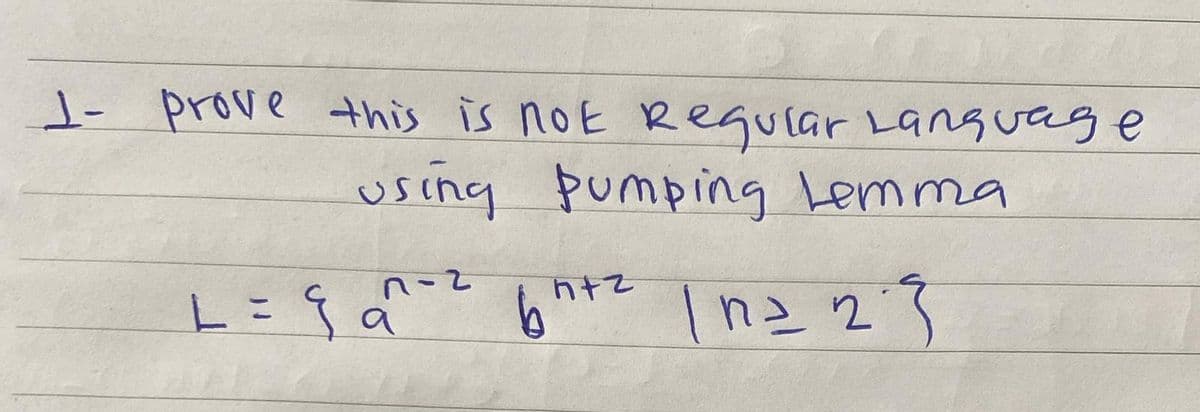 1- prove this is not Regular Language
using pumping Lemma
L = { a^{n-2} b^{n+2} | n ≥ 2 }